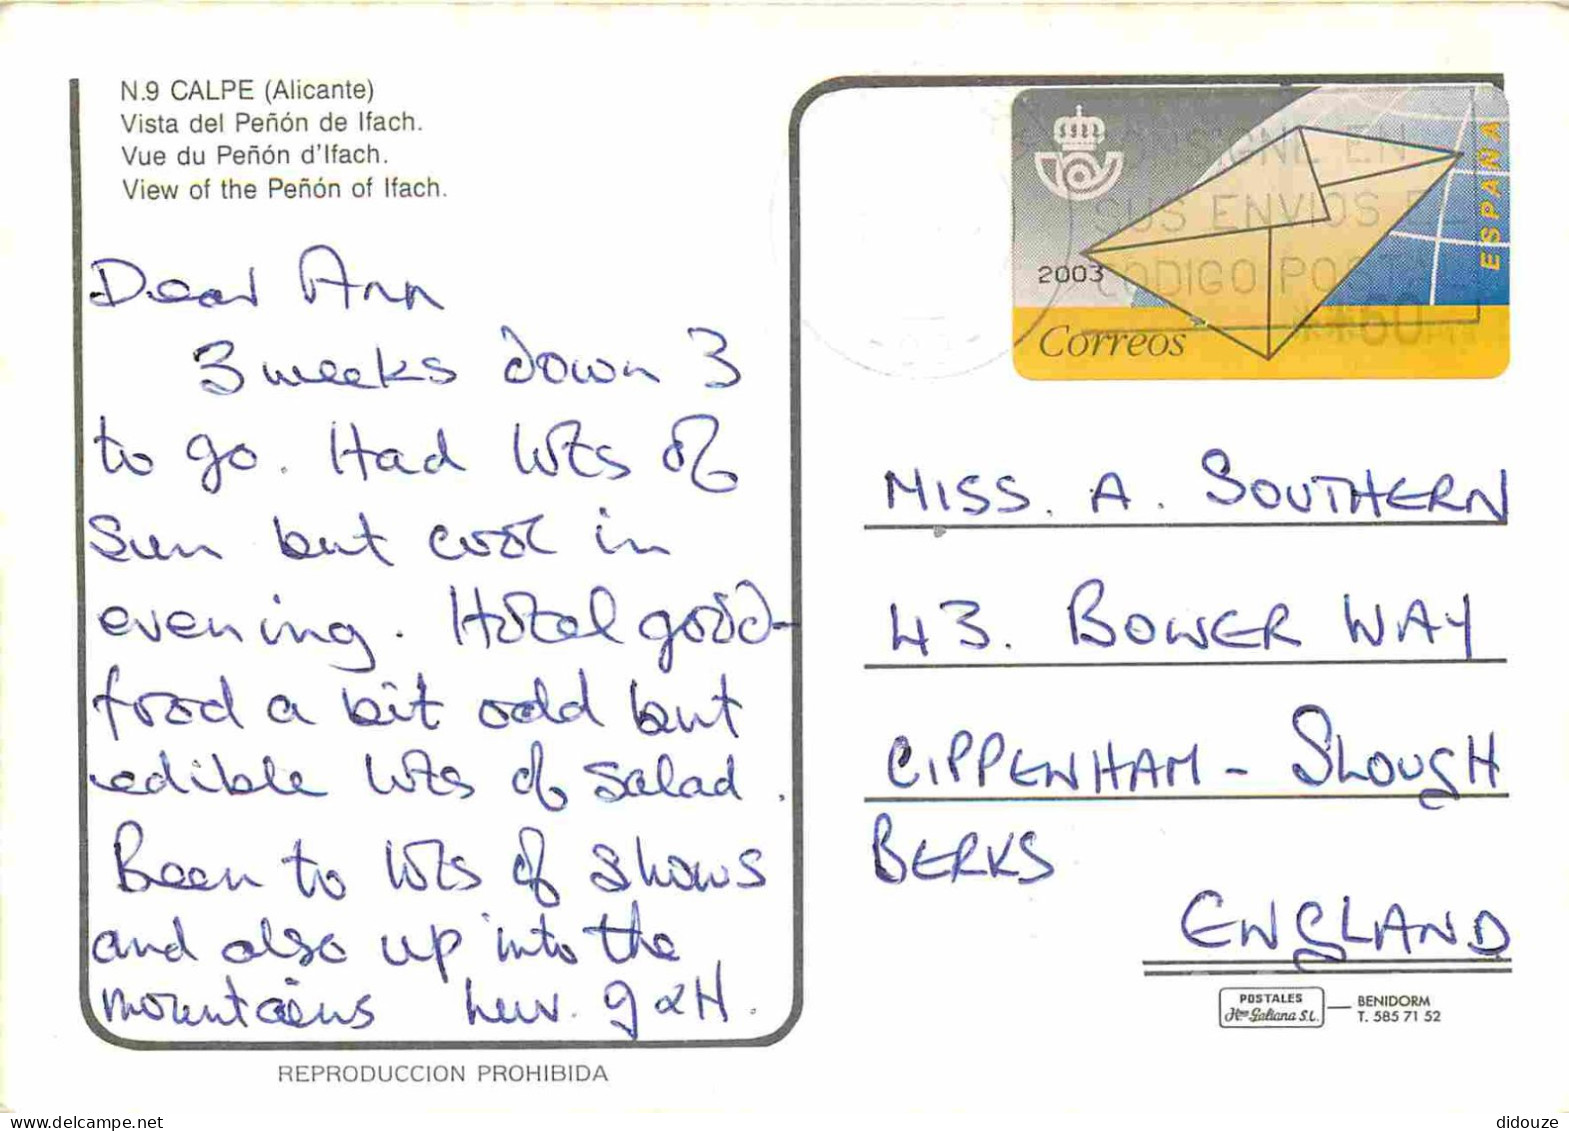 N.9 CALPE (Alicante)
Vista del Peñón de Ifach.
Vue du Peñón d'Ifach.
View of the Peñón of Ifach.
Dear Ann
3 weeks down 3
to go. Had lots of
Sun but cool in
evening. Hotel good -
food a bit odd but
edible lots of salad.
Been to lots of shows
and also up into the
mountains luv. g & H.
REPRODUCCION PROHIBIDA
CONSIGNE EN
SUS ENVIOS EL
CODIGO POSTAL
**60
ESPAÑA
2003
Correos
MISS. A. SOUTHERN
43. BOWER WAY
CIPPENHAM - SLOUGH
BERKS
ENGLAND
POSTALES
Hnos Galiana S.L.
BENIDORM
T. 585 71 52
didouze
www.delcampe.net